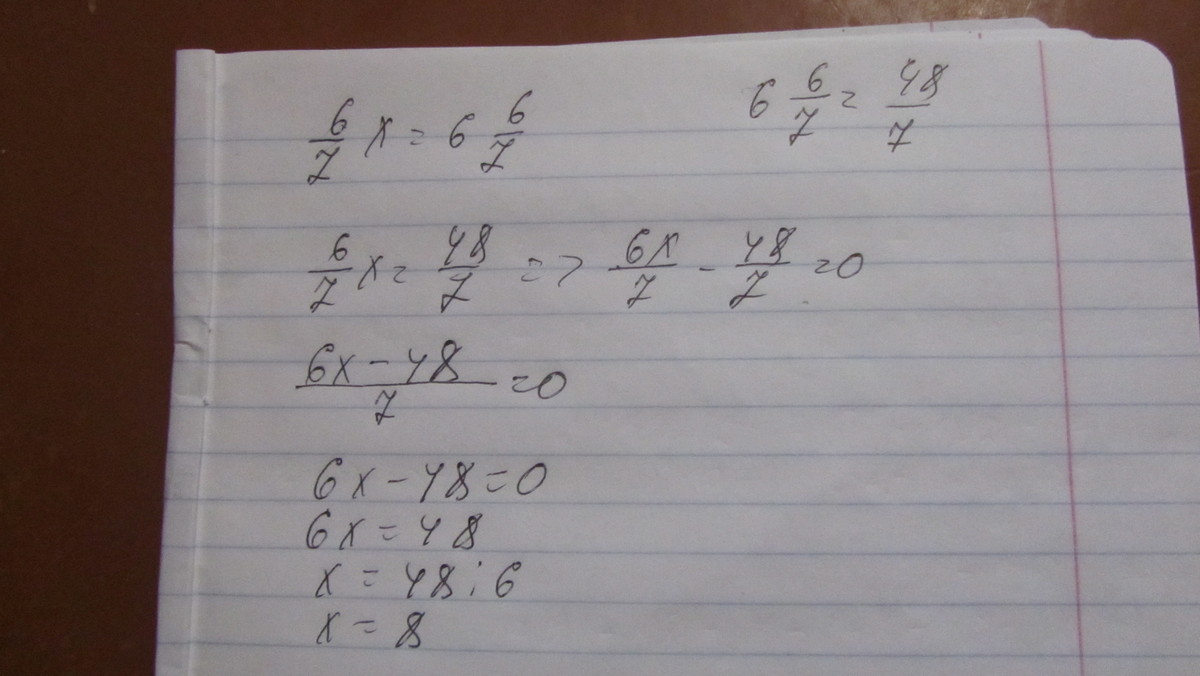 6/7 x = 6 6/7
6 6/7 = 48/7
6/7 x = 48/7 => 6x/7 - 48/7 = 0
(6x - 48)/7 = 0
6x - 48 = 0
6x = 48
x = 48 : 6
x = 8